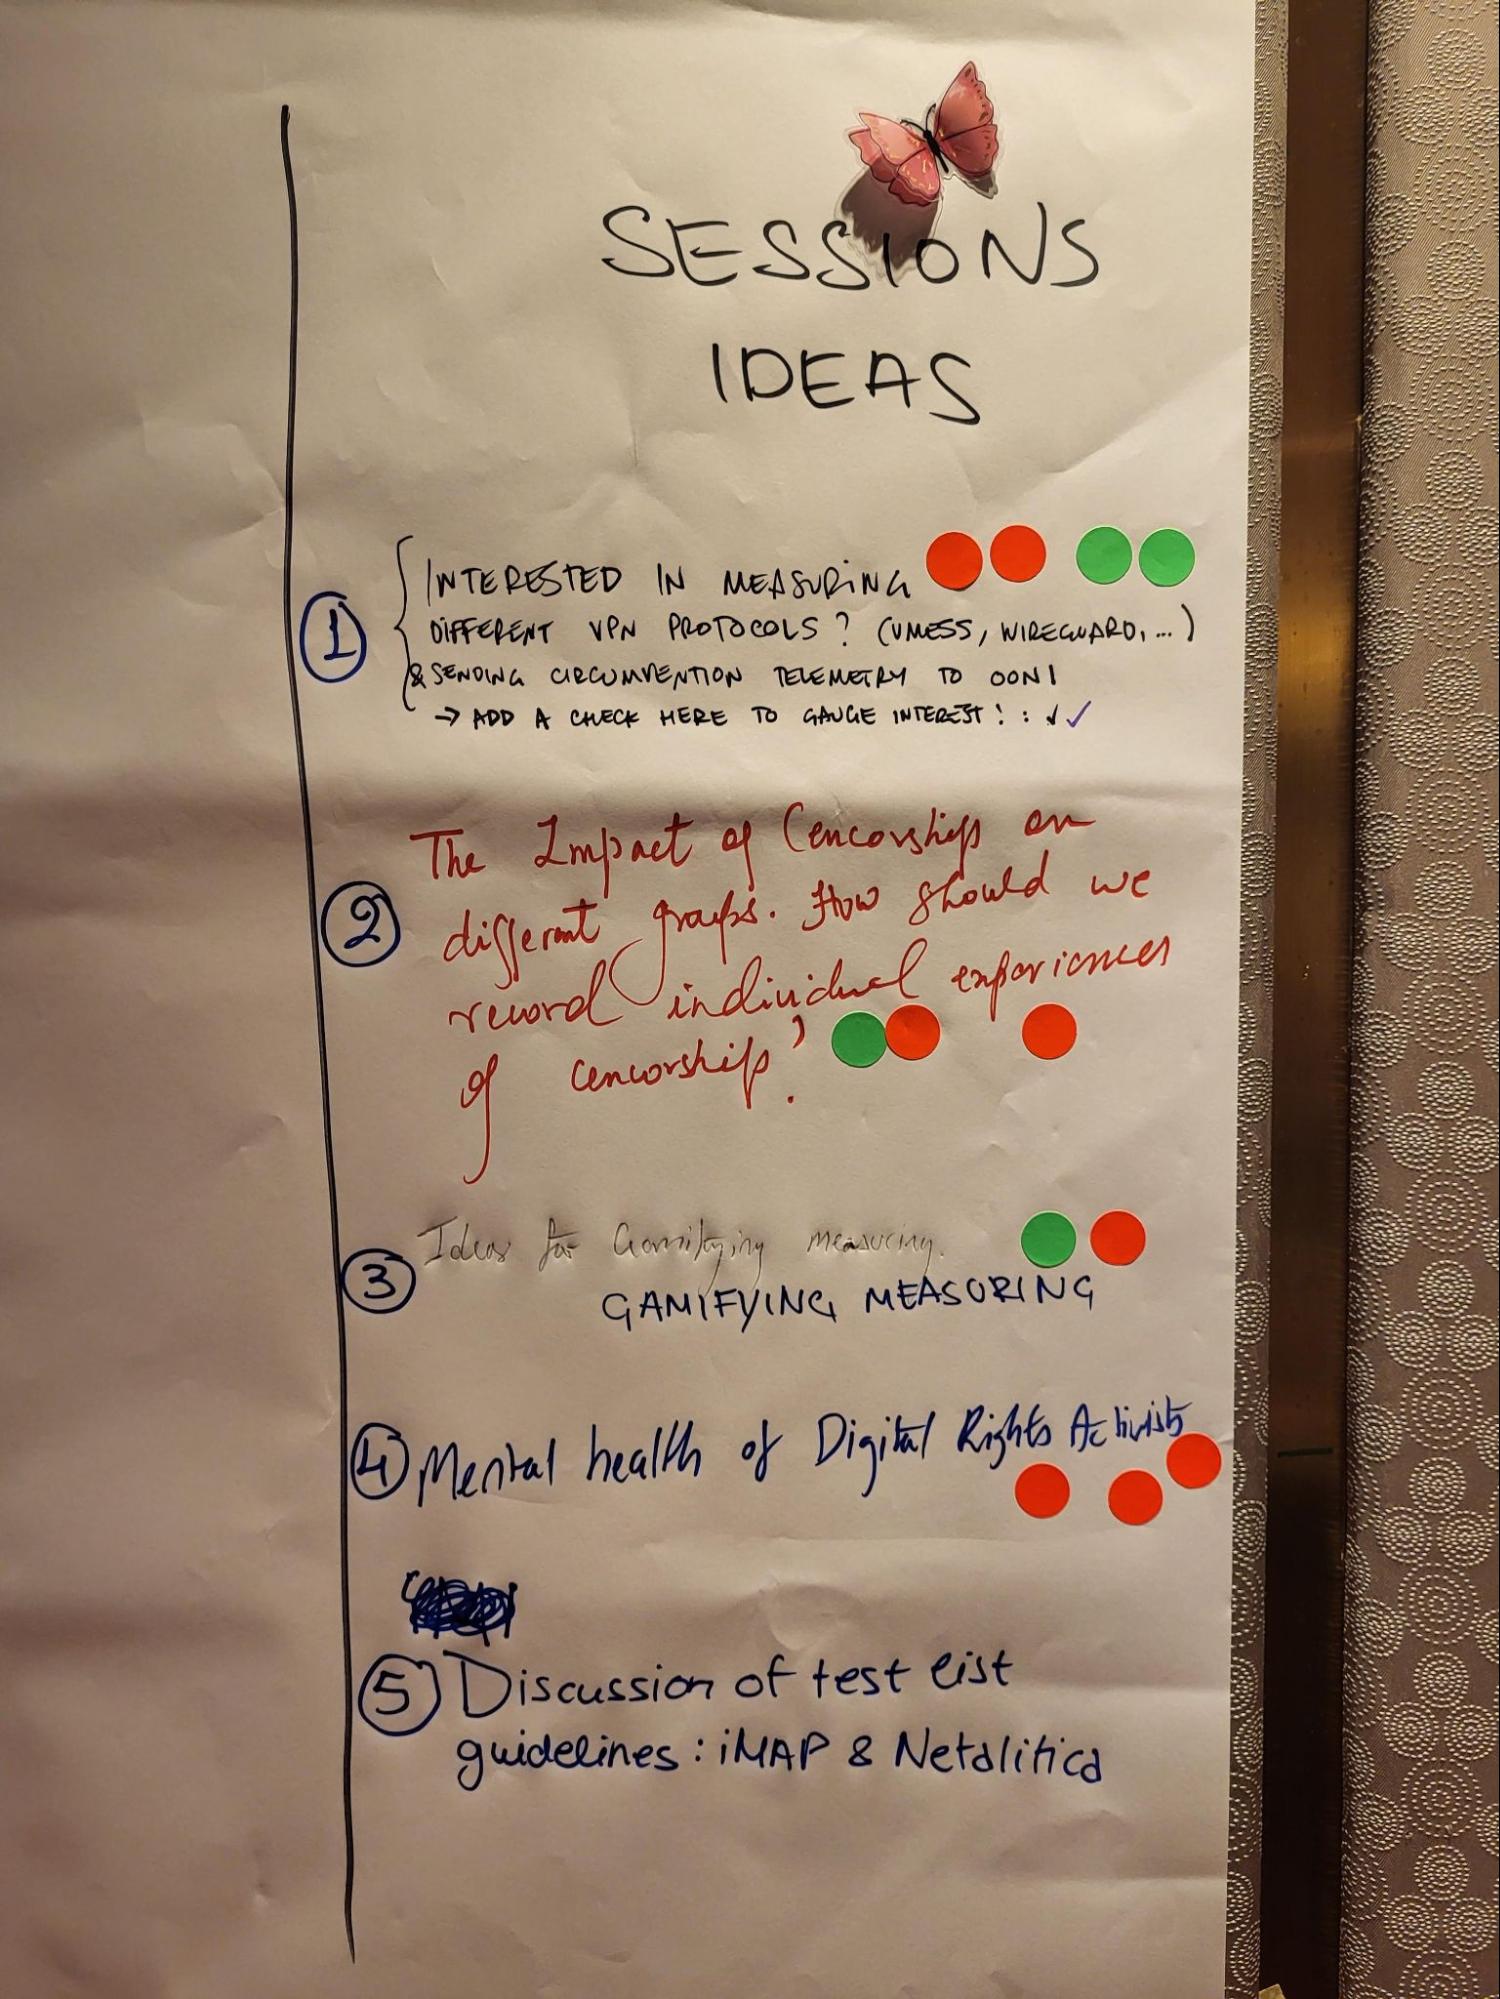 SESSIONS
IDEAS
1
INTERESTED IN MEASURING
DIFFERENT VPN PROTOCOLS? (VMESS, WIREGUARD, ...)
& SENDING CIRCUMVENTION TELEMETRY TO OONI
→ ADD A CHECK HERE TO GAUGE INTEREST! : ✓✓
2
The Impact of Cencorship on
different groups. How should we
record individual experiences
of cencorship?
3
Ideas for Gamifying measuring.
GAMIFYING MEASURING
4 Mental health of Digital Rights Activists
5 Discussion of test list
guidelines: iMAP & Netalitica